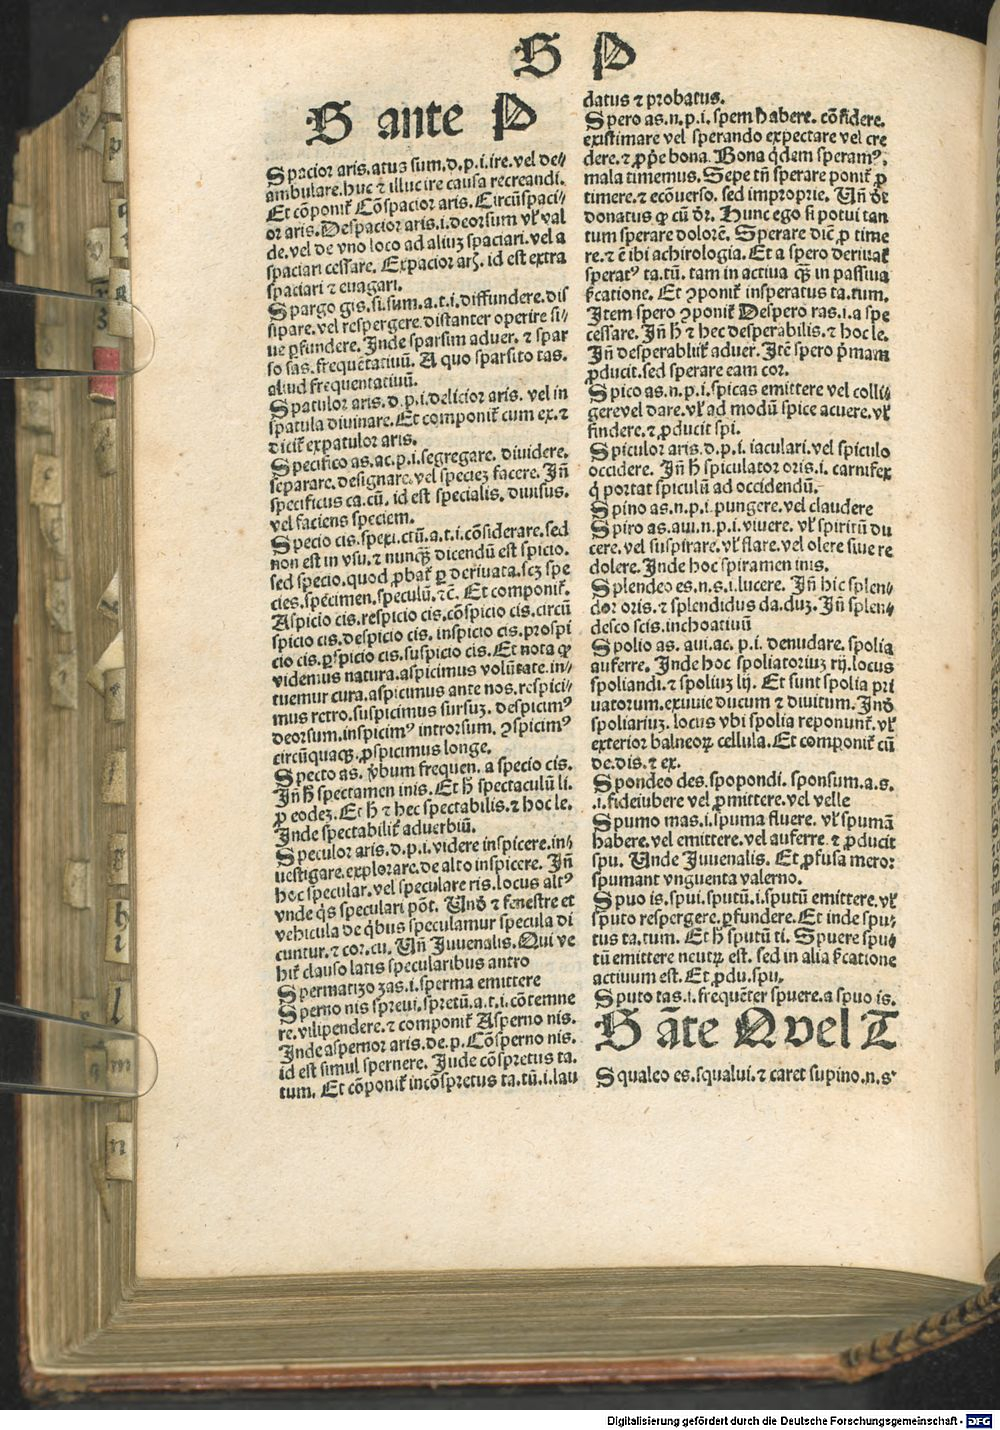 S P
S ante P
Spacior aris.atus sum.d.p.i.ire.vel de⸗
ambulare.huc ⁊ illuc ire causa recreandi.
Et cōponit̄ Cōspacior aris. Circūspaci⸗
or aris.Despacior aris.i.deorsum vl̛ val
de.vel de vno loco ad aliuꝫ spaciari.vel a
spaciari cessare. Expacior arꝭ. id est extra
spaciari ⁊ euagari.
Spargo gis.si.sum.a.t.i.diffundere.dis
sipare.vel respergere.distanter operire si⸗
ue ꝑfundere. Inde sparsim aduer. ⁊ spar
so sas.frequētatiuū. A quo sparsito tas.
aliud frequentatiuū.
Spatulor aris.d.p.i.delicior aris. vel in
spatula diuinare.Et componit̄ cum ex.⁊
dicit̄ expatulor aris.
Specifico as.ac.p.i.segregare. diuidere.
separare.designare.vel specieꝫ facere. Iñ
specificus ca.cū. id est specialis. diuisus.
vel faciens speciem.
Specio cis.spexi.ctū.a.t.i.cōsiderare.sed
non est in vsu.⁊ nunqꝫ dicendū est spicio.
sed specio.quod ꝓbat̄ ꝑ deriuata.scꝫ spe
cies.specimen.speculū.⁊c̄. Et componit̄.
Aspicio cis.respicio cis.cōspicio cis.circū
spicio cis.despicio cis. inspicio cis.prospi
cio cis.ꝑspicio cis.suspicio cis.Et nota ꝙ
videmus natura.aspicimus volūtate.in⸗
tuemur cura.aspicimus ante nos.respici⸗
mus retro.suspicimus sursuꝫ. despicimꝰ
deorsum.inspicimꝰ introrsum. ꝯspicimꝰ
circūquaqꝫ.ꝓspicimus longe.
Specto as. v̛bum frequen. a specio cis.
Iñ ħ spectamen inis.Et ħ spectaculū li.
ꝓ eodeꝫ.Et ħ ⁊ hec spectabilis.⁊ hoc le.
Inde spectabilit̄ aduerbiū.
Speculor aris.d.p.i.videre inspicere.in⸗
uestigare.explorare.de alto inspicere. Iñ
hoc specular.vel speculare ris.locus altꝰ
vnde qͥs speculari pōt. Vnđ ⁊ fenestre et
vehicula de qͥbus speculamur specula di
cuntur.⁊ cor.cu. Vñ Iuuenalis.Qui ve
hit̄ clauso latis specularibus antro
Spermatizo zas.i.sperma emittere
Sperno nis spreui.spretū.a.t.i.cōtemne
re.vilipendere.⁊ componit̄ Asperno nis.
Inde aspernor aris.de.p.Cōsperno nis.
id est simul spernere. Iude cōspretus ta.
tum. Et cōponit̄ incōspretus ta.tū.i.lau
datus ⁊ probatus.
Spero as.n.p.i.spem habere. cōfidere.
existimare vel sperando expectare vel cre
dere.⁊ ꝓpͥe bona. Bona qͥdem speramꝰ.
mala timemus. Sepe tñ sperare ponit̄ ꝓ
timere.⁊ ecōuerso. sed improprie. Vñ đe
donatus ꝙ cū đr. Hunc ego si potui tan
tum sperare dolorē. Sperare dic̄ ꝓ time
re.⁊ ē ibi achirologia. Et a spero deriuat̄
speratꝰ ta.tū. tam in actiua qꝫ in passiua
ẜcatione. Et ꝯponit̄ insperatus ta.tum.
Item spero ꝯponit̄ Despero ras.i.a spe
cessare. Iñ ħ ⁊ hec desperabilis.⁊ hoc le.
Iñ desperabilit̄ aduer. Itē spero pͥmam
ꝓducit.sed sperare eam cor.
Spico as.n.p.i.spicas emittere vel colli⸗
gerevel dare.vl̛ ad modū spice acuere.vl̛
findere.⁊ ꝓducit spi.
Spiculor aris.d.p.i. iaculari.vel spiculo
occidere. Iñ ħ spiculator oris.i. carnifex
qͥ portat spiculū ad occidendū.
Spino as.n.p.i pungere.vel claudere
Spiro as.aui.n.p.i.viuere. vl̛ spiritū du
cere.vel suspirare.vl̛ flare.vel olere siue re
dolere. Inde hoc spiramen inis.
Splendeo es.n.s.i.lucere. Iñ hic splen⸗
dor oris.⁊ splendidus da.duꝫ. Iñ splen⸗
desco scis.inchoatiuū
Spolio as. aui.ac. p.i. denudare. spolia
auferre. Inde hoc spoliatoriuꝫ rij.locus
spoliandi.⁊ spoliuꝫ lij. Et sunt spolia pri
uatorum.exuuie ducum ⁊ diuitum. Inđ
spoliariuꝫ. locus vbi spolia reponunt̄. vl̛
exterior balneoꝝ cellula.Et componit̄ cū
de.dis.⁊ ex.
Spondeo des.spopondi. sponsum.a.s.
.i.fideiubere vel ꝓmittere.vel velle
Spumo mas.i.spuma fluere. vl̛ spumā
habere.vel emittere.vel auferre.⁊ ꝓducit
spu. Vnde Iuuenalis. Et ꝓfusa mero:
spumant vnguenta valerno.
Spuo is.spui.sputū.i.sputū emittere.vl̛
sputo respergere.ꝑfundere.Et inde spu⸗
tus ta.tum. Et ħ sputū ti. Spuere spu⸗
tū emittere neutꝝ est. sed in alia ẜcatione
actiuum est. Et ꝓdu.spu.
Sputo tas.i.frequēter spuere.a spuo is.
S āte Q vel T
Squaleo es.squalui.⁊ caret supino.n.s
h
i
l
m
n
Digitalisierung gefördert durch die Deutsche Forschungsgemeinschaft - DFG